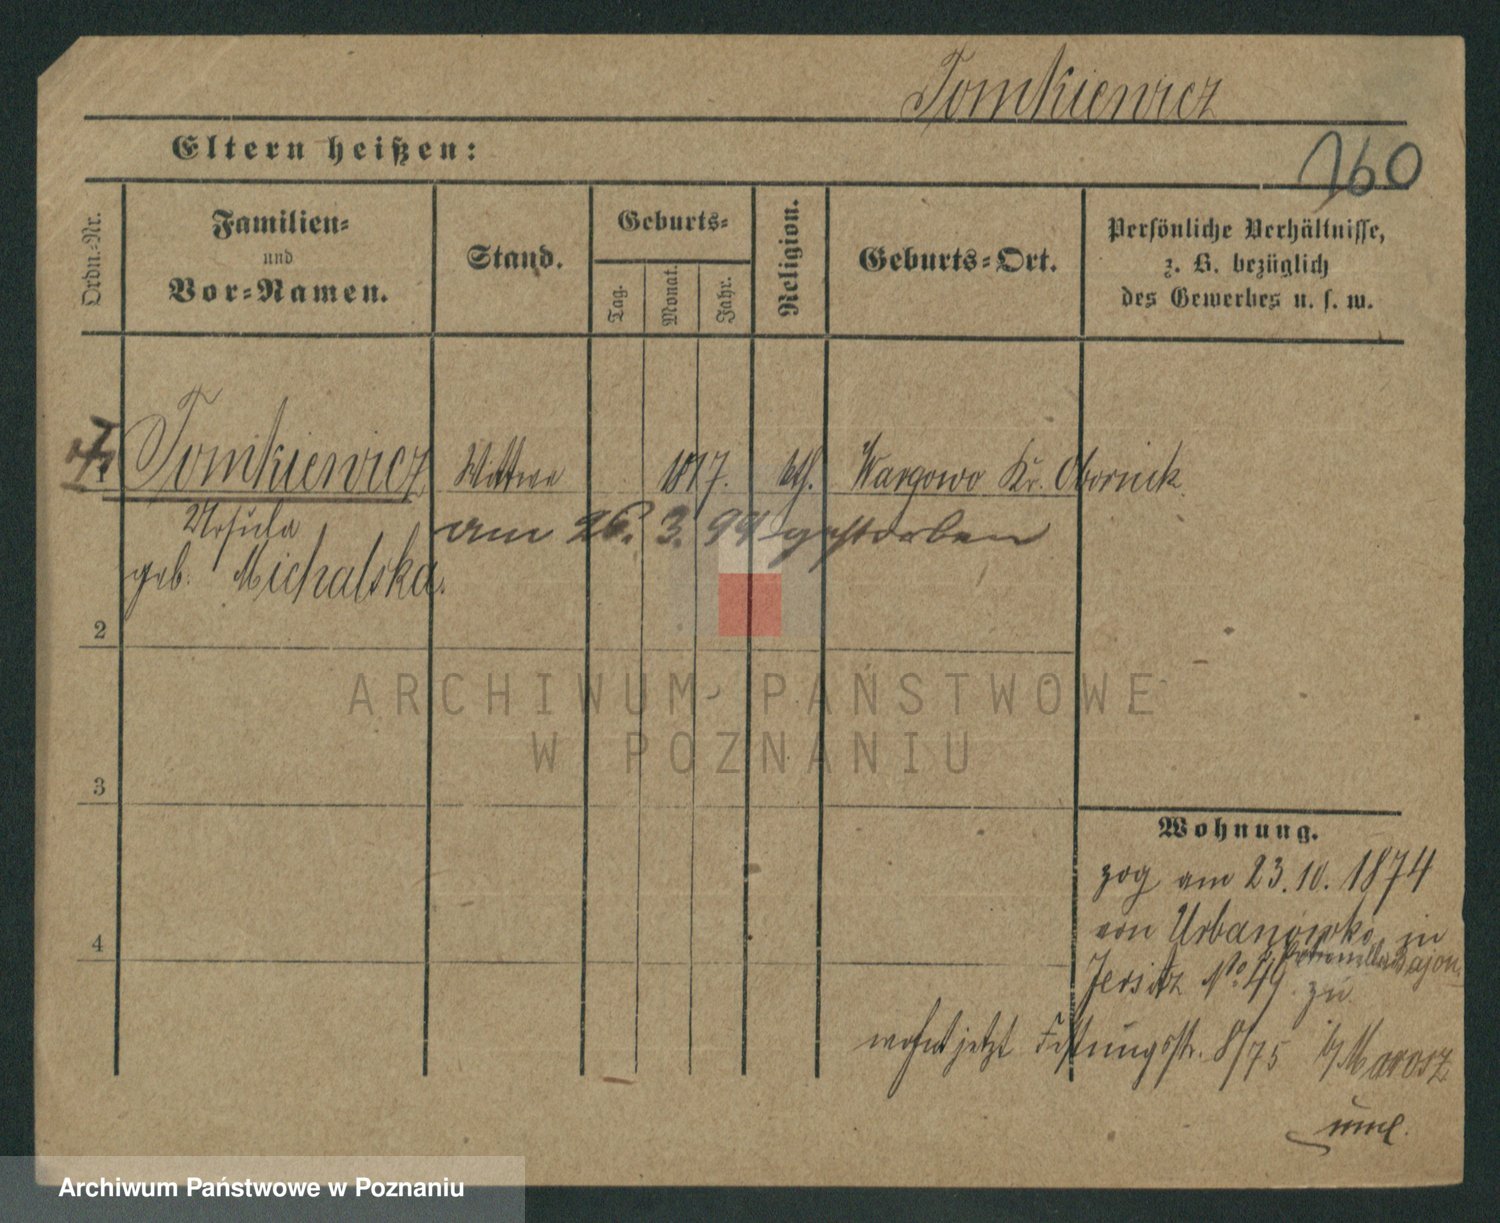 Tomkiewicz
Eltern heißen:
160
Ordn.-Nr.
Familien-
und
Vor-Namen.
Stand.
Geburts-
Tag.
Monat.
Jahr.
Religion.
Geburts-Ort.
Persönliche Verhältnisse,
z. B. bezüglich
des Gewerbes u. s. w.
1 Tomkiewicz Wittwe 1817. kth. Wargowo Kr. Obornik
Ursula am 26. 3. 94 gestorben
geb. Michalska.
2
ARCHIWUM PAŃSTWOWE
W POZNANIU
3
Wohnung.
zog am 23. 10. 1874
von Urbanowko in
Jersitz No. 49 zu
4
wohnt jetzt Festungsstr. 8/75 b/Marosz
Archiwum Państwowe w Poznaniu